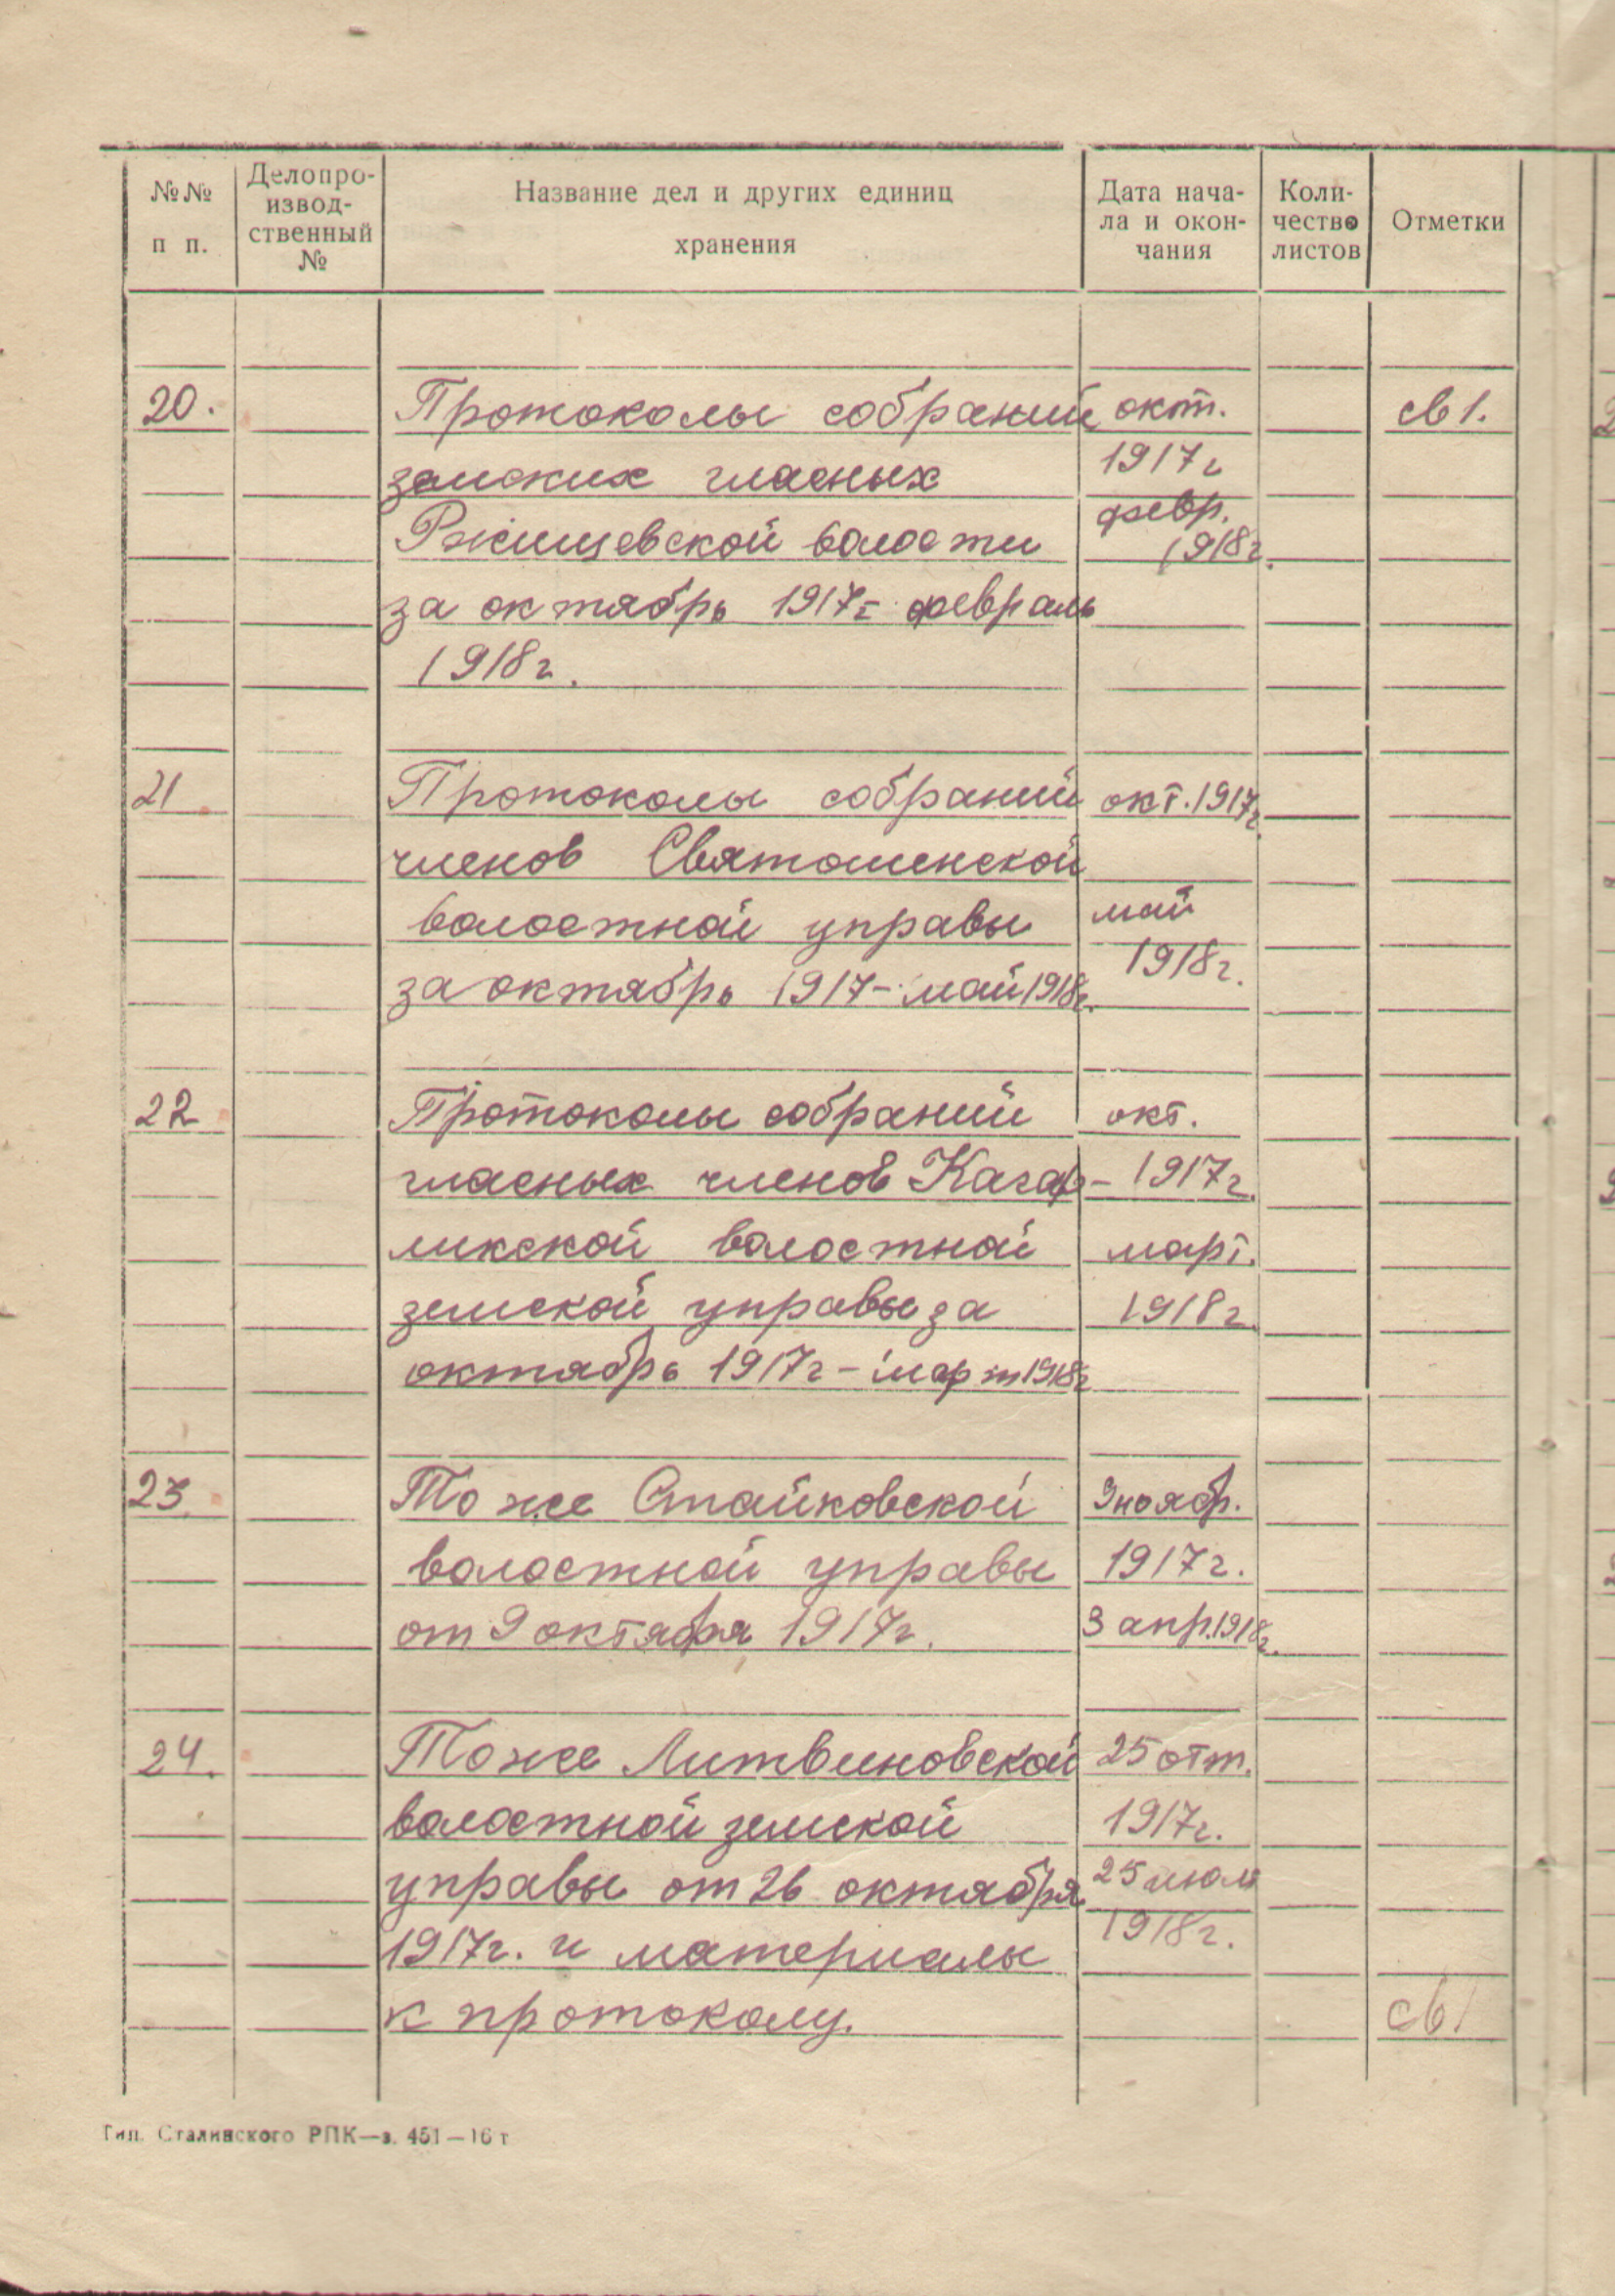 №№
п п.
Делопро-
извод-
ственный
№
Название дел и других единиц
хранения
Дата нача-
ла и окон-
чания
Коли-
чество
листов
Отметки
20. Протоколы собраний окт. св 1.
земских гласных 1917г
Ржищевской волости февр. 1918г.
за октябрь 1917г февраль
1918г.
21 Протоколы собраний окт. 1917г.
членов Святошенской
волостной управы май
за октябрь 1917-май 1918г. 1918г.
22 Протоколы собраний окт.
гласных членов Кагар- 1917г.
ликской волостной март.
земской управы за 1918г.
октябрь 1917г-март 1918г
23. То же Стайковской 9 ноябр.
волостной управы 1917г.
от 9 октября 1917г. 3 апр. 1918г.
24. То же Литвиновской 25 отт.
волостной земской 1917г.
управы от 26 октября 25 июля
1917г. и материалы 1918г.
к протоколу. св 1
Тип. Сталинского РПК—з. 451—16 т